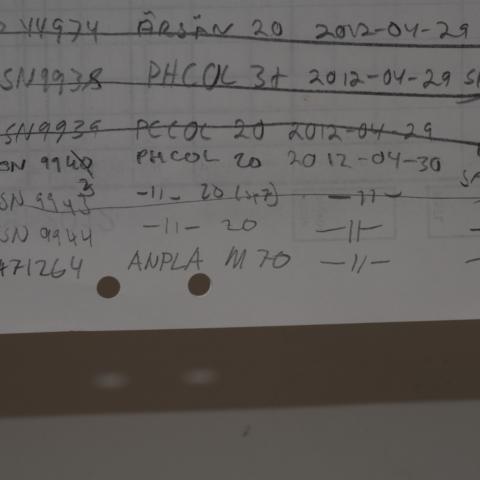 44974 ÄRSÄN 20 2012-04-29
SN9938 PHCOL 3+ 2012-04-29
SN9939 PECOL 20 2012-04-29
SN 9940 PHCOL 20 2012-04-30
SN 9943 -11- 20 -11-
SN 9944 -11- 20 -11-
A71264 ANPLA M70 -11-